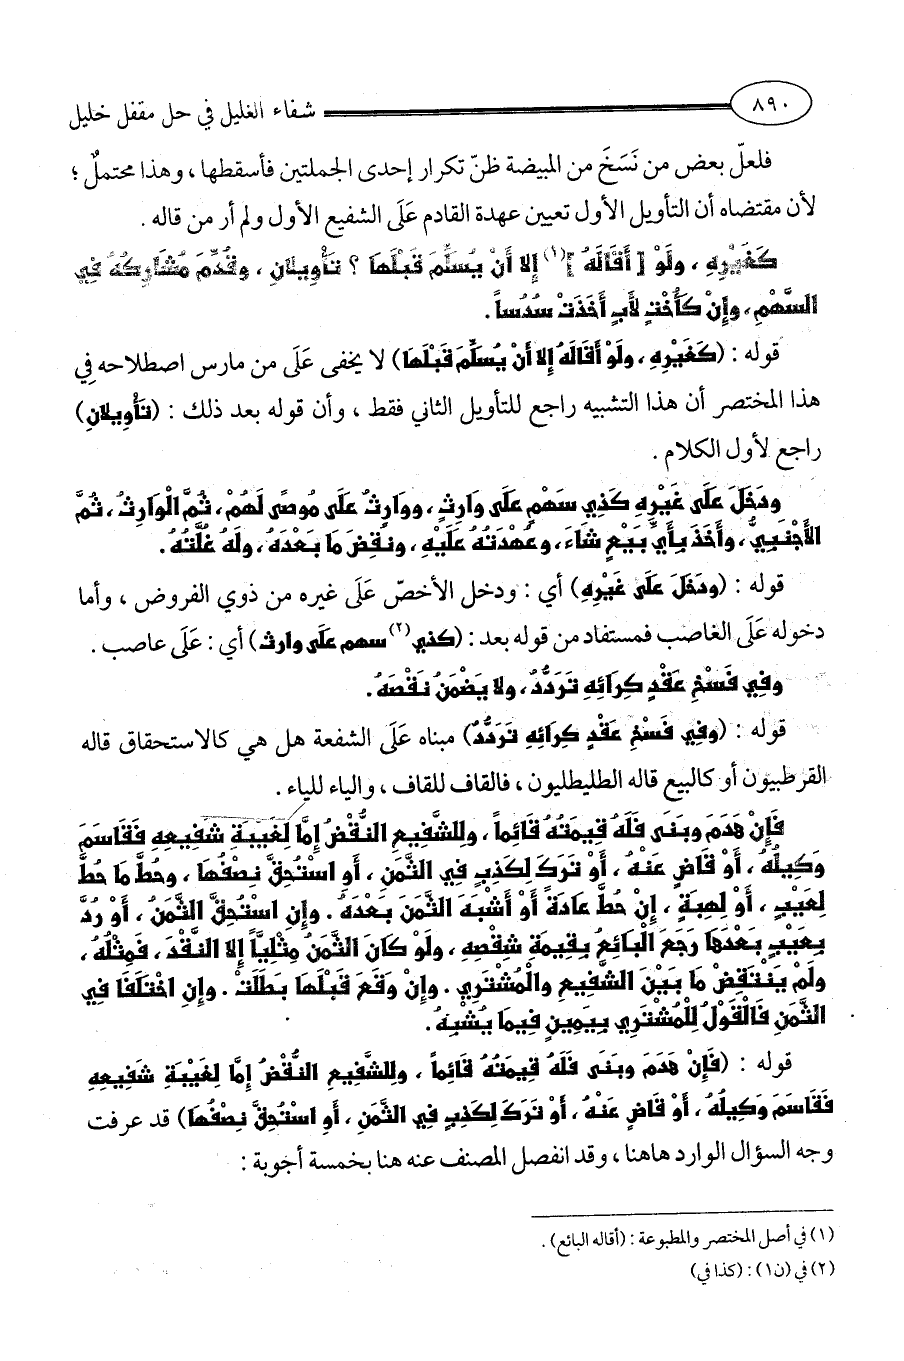 ٨٩٠
شفاء الغليل في حل مقفل خليل
فلعلّ بعض من نَسَخَ من المبيضة ظنّ تكرار إحدى الجملتين فأسقطها ، وهذا محتملٌ ؛
لأن مقتضاه أن التأويل الأول تعيين عهدة القادم عَلَى الشفيع الأول ولم أر من قاله .
كَغَيْرِهِ ، ولَوْ [ أَقَالَهُ ](١) إلا أَنْ يُسَلِّمَ قَبْلَهَا ؟ تَأْوِيلانِ ، وقُدِّمَ مُشَارِكُهُ فِي
السَّهْمِ ، وإِنْ كَأُخْتٍ لأَبٍ أَخَذَتْ سُدُساً .
قوله : (كَغَيْرِهِ ، ولَوْ أَقَالَهُ إلا أَنْ يُسَلِّمَ قَبْلَهَا) لا يخفى عَلَى من مارس اصطلاحه فِي
هذا المختصر أن هذا التشبيه راجع للتأويل الثاني فقط ، وأن قوله بعد ذلك : (تَأْوِيلانِ)
راجع لأول الكلام .
ودَخَلَ عَلَى غَيْرِهِ كَذِي سَهْمٍ عَلَى وَارِثٍ ، ووَارِثٌ عَلَى مُوصًى لَهُمْ ، ثُمَّ الْوَارِثُ ، ثُمَّ
الأَجْنَبِيُّ ، وأَخَذَ بِأَيِّ بَيْعٍ شَاءَ ، وعُهْدَتُهُ عَلَيْهِ ، ونُقِضَ مَا بَعْدَهُ ، ولَهُ غَلَّتُهُ .
قوله : (ودَخَلَ عَلَى غَيْرِهِ) أي : ودخل الأخصّ عَلَى غيره من ذوي الفروض ، وأما
دخوله عَلَى الغاصب فمستفاد من قوله بعد : (كذي(٢) سهم على وارث) أي : عَلَى عاصب .
وفِي فَسْخِ عَقْدِ كِرَائِهِ تَرَدُّدٌ ، ولا يَضْمَنُ نَقْصَهُ .
قوله : (وفِي فَسْخِ عَقْدِ كِرَائِهِ تَرَدُّدٌ) مبناه عَلَى الشفعة هل هي كالاستحقاق قاله
القرطبيون أو كالبيع قاله الطليطليون ، فالقاف للقاف ، والياء للياء .
فَإِنْ هَدَمَ وبَنَى فَلَهُ قِيمَتُهُ قَائِماً ، ولِلشَّفِيعِ النُّقْضُ إِمَّا لِغَيْبَةِ شَفِيعِهِ فَقَاسَمَ
وَكِيلُهُ ، أَوْ قَاضٍ عَنْهُ ، أَوْ تَرَكَ لِكَذِبٍ فِي الثَّمَنِ ، أَوِ اسْتُحِقَّ نِصْفُهَا ، وحُطَّ مَا حُطَّ
لِعَيْبٍ ، أَوْ لِهِبَةٍ ، إِنْ حُطَّ عَادَةً أَوْ أَشْبَهَ الثَّمَنَ بَعْدَهُ . وإِنِ اسْتُحِقَّ الثَّمَنُ ، أَوْ رُدَّ
بِعَيْبٍ بَعْدَهَا رَجَعَ الْبَائِعُ بِقِيمَةِ شِقْصِهِ ، ولَوْ كَانَ الثَّمَنُ مِثْلِيّاً إِلا النَّقْدَ ، فَمِثْلُهُ ،
ولَمْ يَنْتَقِضْ مَا بَيْنَ الشَّفِيعِ والْمُشْتَرِي . وإِنْ وَقَعَ قَبْلَهَا بَطَلَتْ . وإِنِ اخْتَلَفَا فِي
الثَّمَنِ فَالْقَوْلُ لِلْمُشْتَرِي بِيَمِينٍ فِيمَا يُشْبِهُ .
قوله : (فَإِنْ هَدَمَ وبَنَى فَلَهُ قِيمَتُهُ قَائِماً ، ولِلشَّفِيعِ النُّقْضُ إِمَّا لِغَيْبَةِ شَفِيعِهِ
فَقَاسَمَ وَكِيلُهُ ، أَوْ قَاضٍ عَنْهُ ، أَوْ تَرَكَ لِكَذِبٍ فِي الثَّمَنِ ، أَوِ اسْتُحِقَّ نِصْفُهَا) قد عرفت
وجه السؤال الوارد هاهنا ، وقد انفصل المصنف عنه هنا بخمسة أجوبة :
(١) في أصل المختصر والمطبوعة : (أقاله البائع) .
(٢) في (ن١) : (كذا في)